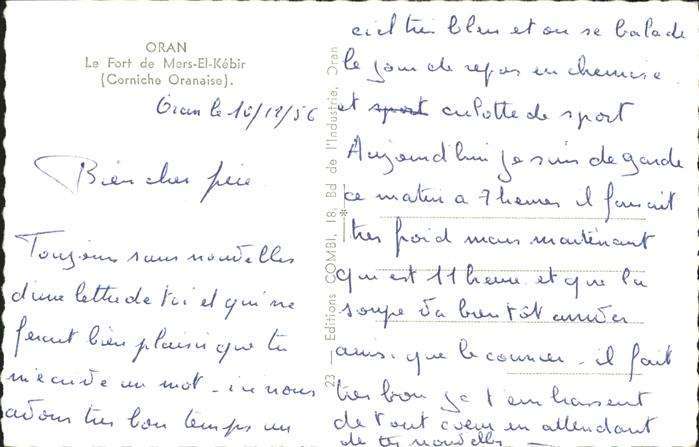 ORAN
Le Fort de Mers-El-Kébir
(Corniche Oranaise).
Oran le 10/12/56
Bien cher père
Toujours sans nouvelles
d'une lettre de toi et qui me
ferait bien plaisir que tu
m'ecrive un mot - ici nous
avons tres bon temps un
23 — Editions COMBI, 18, Bd de l'Industrie, Oran
ciel tres bleu et on se balade
le jour de repos en chemise
et sport culotte de sport
Aujourd'hui je suis de garde
ce matin a 7 heures il faisait
tres froid mais maintenant
qui est 11 heure et que la
soupe va bientôt arriver
ainsi que le courrier - il fait
tres bon je t'embrassent
de tout coeur en attendant
de tes nouvelles